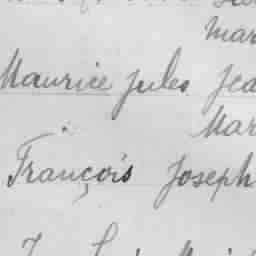 Mar
Maurice Jules Jea
Mar
François Joseph